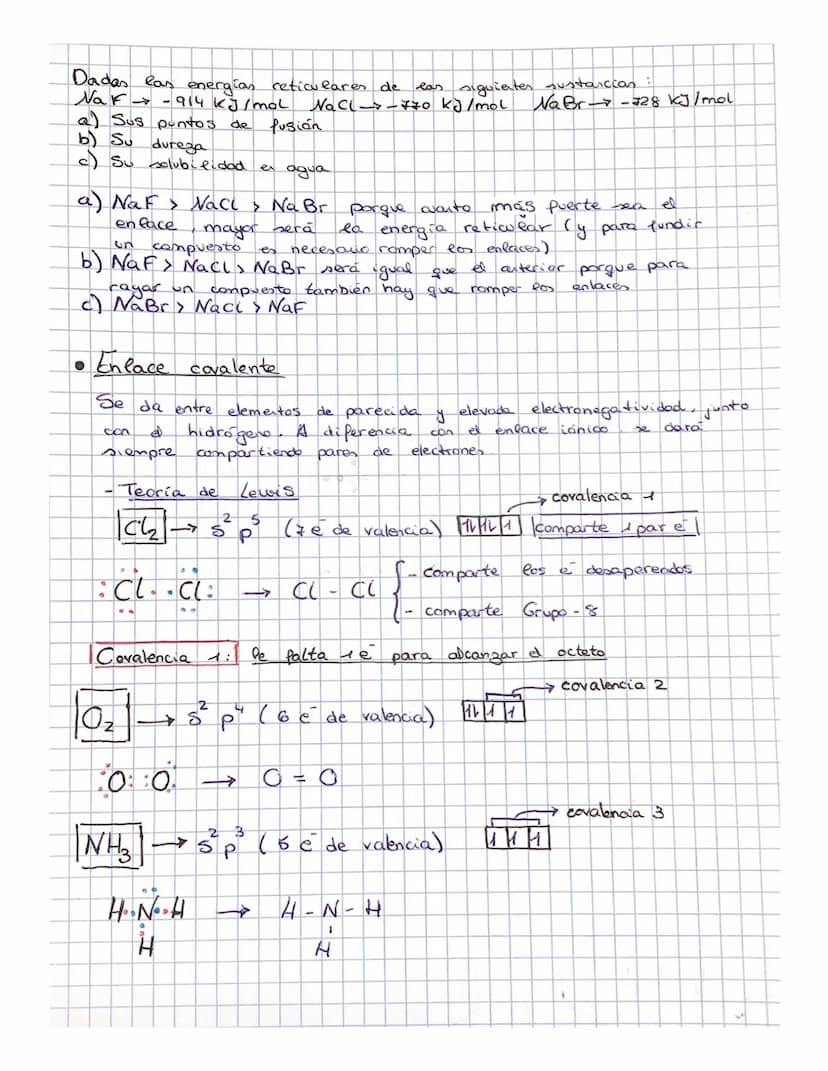 Dadas las energías reticulares de las siguientes sustancias:
NaF → -914 KJ/mol NaCl → -770 KJ/mol NaBr → -728 KJ/mol
a) Sus puntos de fusión
b) Su dureza
c) Su solubilidad en agua
a) NaF > NaCl > NaBr porque cuanto más fuerte sea el
enlace, mayor será la energía reticular (y para fundir
un compuesto es necesario romper los enlaces)
b) NaF > NaCl > NaBr será igual que el anterior porque para
rayar un compuesto también hay que romper los enlaces
c) NaBr > NaCl > NaF
• Enlace covalente
Se da entre elementos de parecida y elevada electronegatividad, junto
con el hidrógeno. A diferencia con el enlace iónico se dará
siempre compartiendo pares de electrones
- Teoría de Lewis
→ covalencia 1
Cl₂ → s² p⁵ (7 e⁻ de valencia) ⥮ ⥮ 1 comparte 1 par e⁻
:Cl· ·Cl: → Cl - Cl { - comparte los e⁻ desaparendos
- comparte Grupo - 8
Covalencia 1: le falta 1 e⁻ para alcanzar el octeto
→ covalencia 2
O₂ → s² p⁴ (6 e⁻ de valencia) ⥮ 1 1
:O: :O: → O = O
→ covalencia 3
NH₃ → s² p³ (5 e⁻ de valencia) 1 1 1
H··N··H → H - N - H
H H